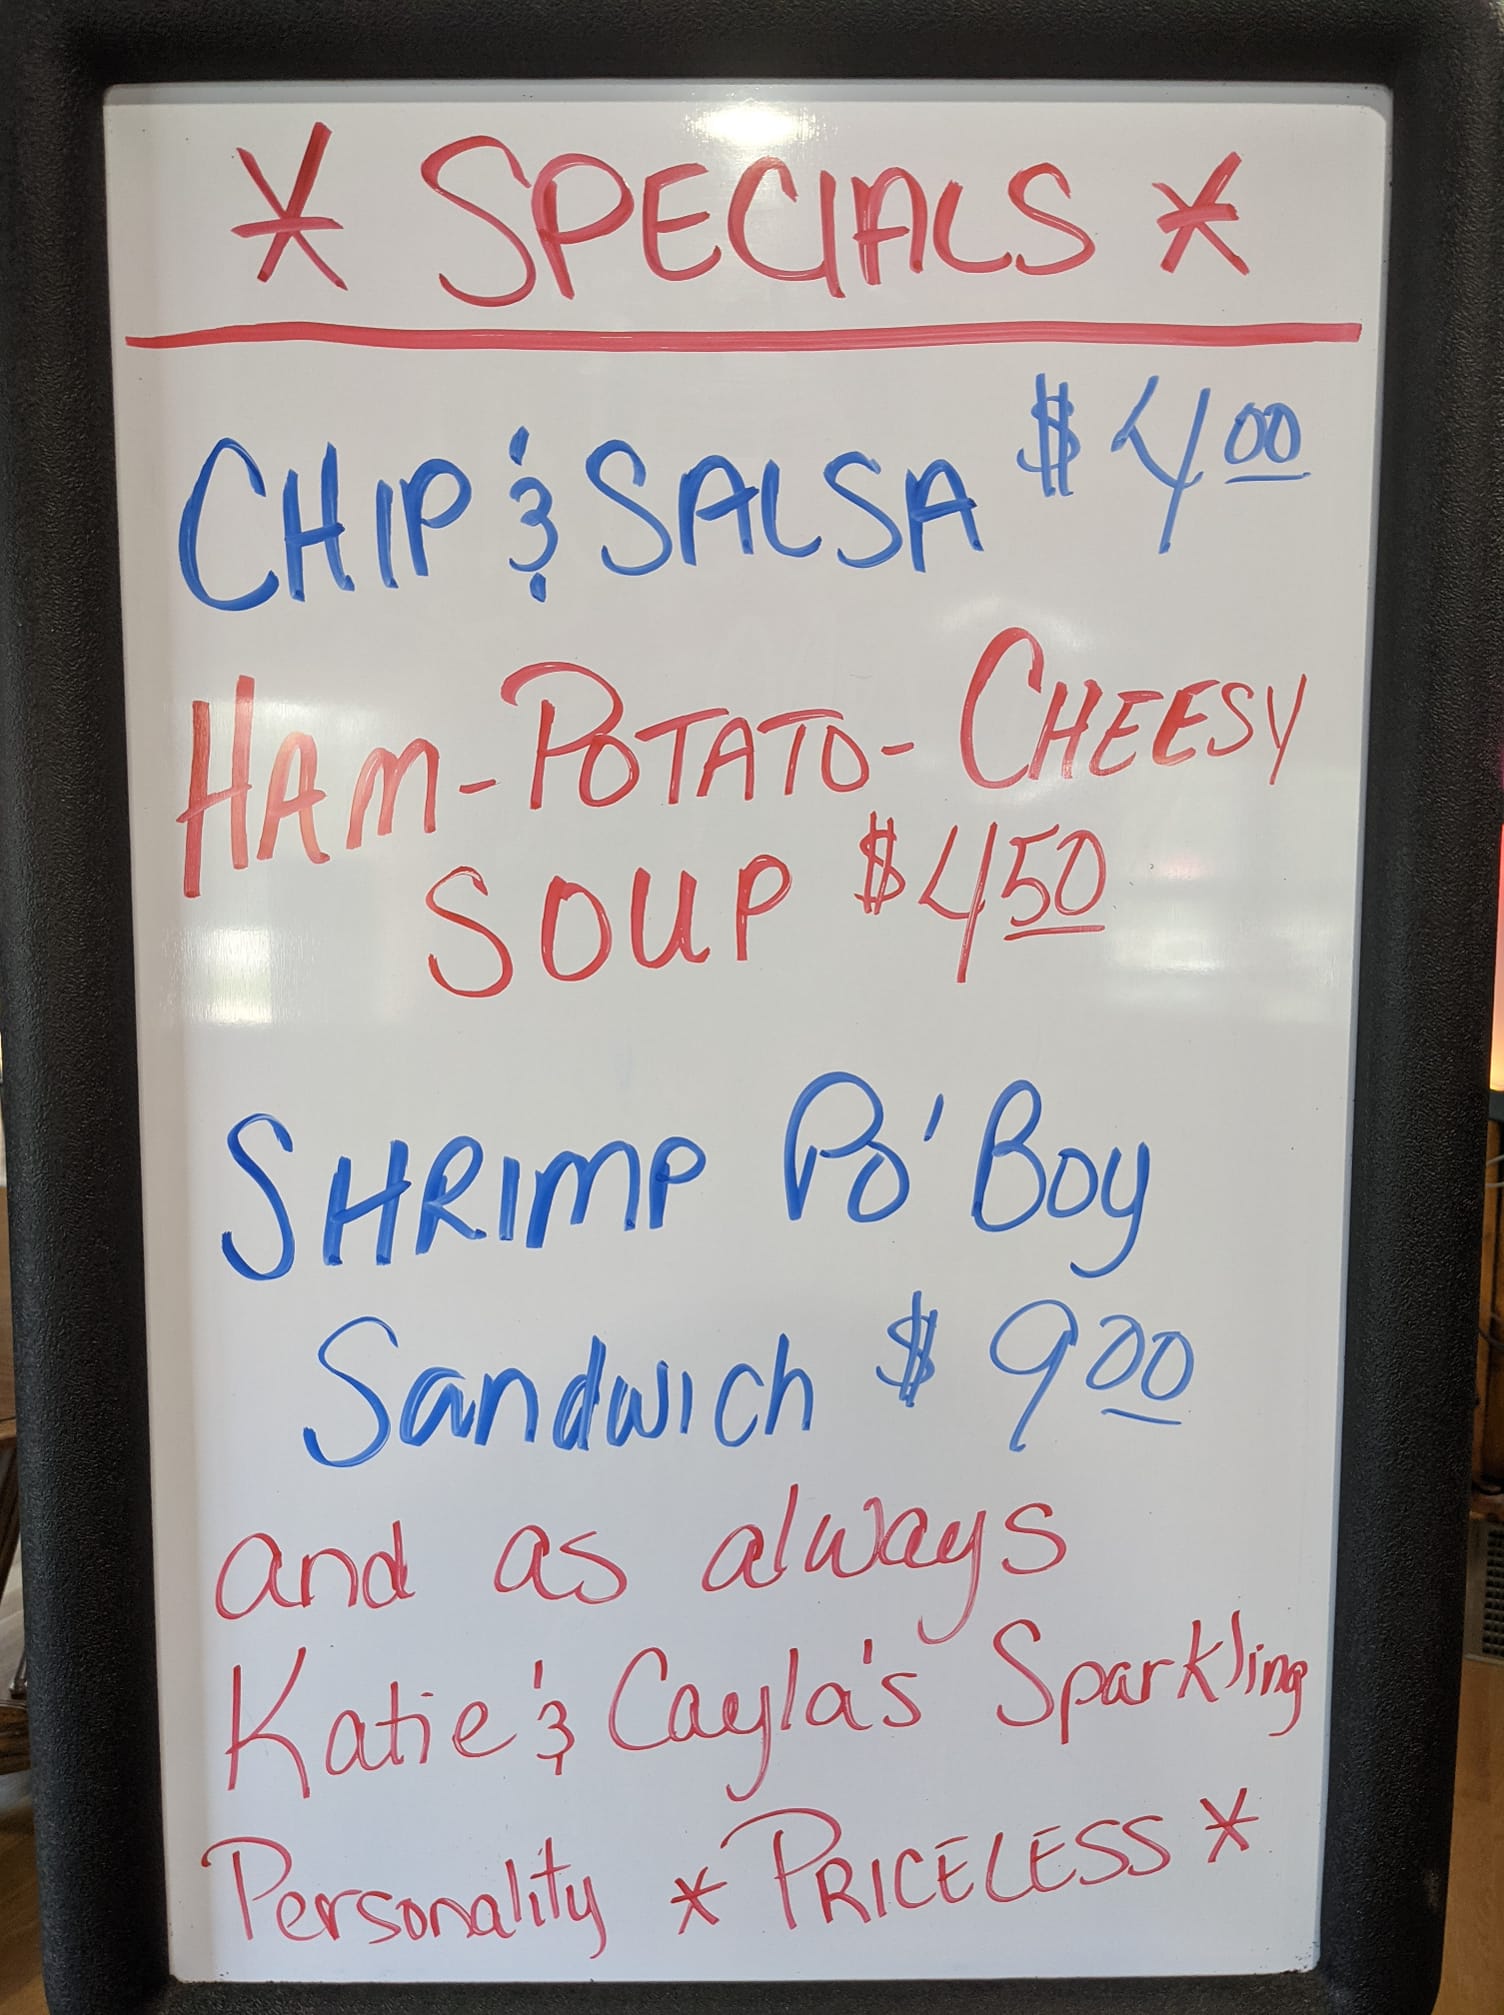 * SPECIALS *
CHIP & SALSA $4.00
HAM-POTATO-CHEESY
SOUP $4.50
SHRIMP PO'BOY
Sandwich $9.00
and as always
Katie & Cayla's Sparkling
Personality * PRICELESS *